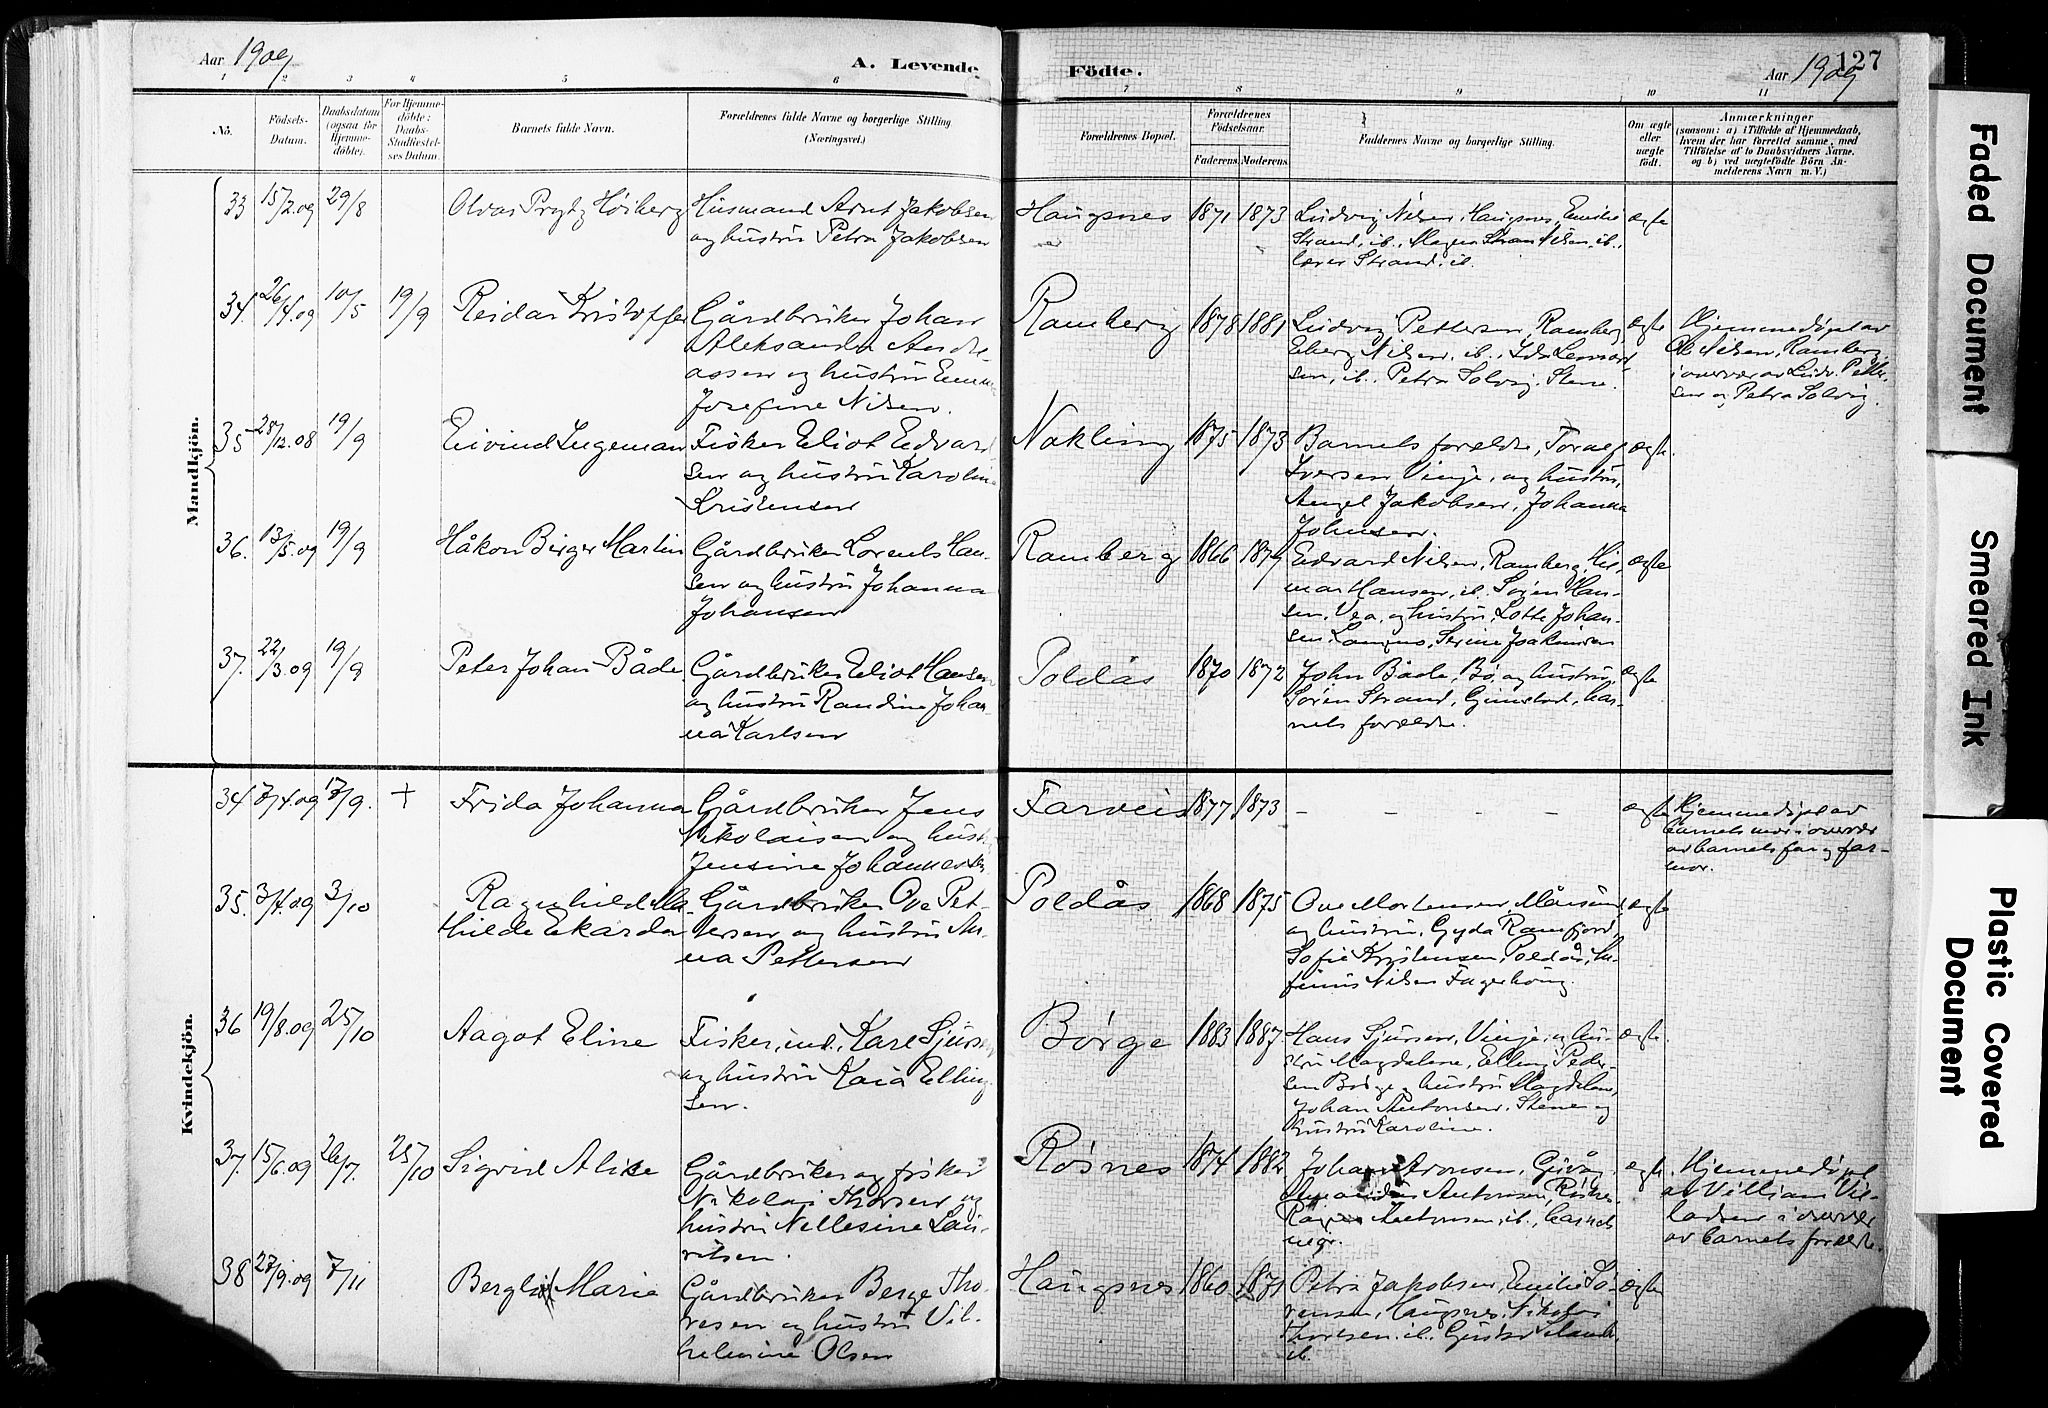 Aar 1909
A. Levende
Födte.
Aar 1909
127
1 2 3 4 5 6 7 8 9 10 11
No.
Födsels-
Datum.
Daabsdatum
(ogsaa for
Hjemme-
döbte).
For Hjemme-
döbte:
Daabs-
Stadfæstel-
ses Datum.
Barnets fulde Navn.
Forældrenes fulde Navne og borgerlige Stilling
(Næringsvei.)
Forældrenes Bopæl.
Forældrenes
Födselsaar.
Faderens. Moderens.
Faddernes Navne og borgerlige Stilling.
Om ægte
eller
uægte
födt.
Anmærkninger
(saasom: a) i Tilfælde af Hjemmedaab,
hvem der har forrettet samme, med
Tilföielse af to Daabsvidners Navne.
og b) ved uægtefödte Börn An-
melderens Navn m. V.)
Mandkjön.
33 15/2.09 29/8
Høiberg
Husmand Arnt Jakobsen
og hustru Petra Jakobsen
Haugsnes 1871 1873
Ludvig Nilsen, Haugsnes, Emilie
Strand, ib.,
Strand, ib.
ægte
34. 26/4.09 10/5 19/9
Reidar Kristoffer
Gårdbruker Johan
Aleksander Andre-
assen og hustru Emma
Josefine Nilsen.
Ramberg 1878 1881
Ludvig Pettersen, Ramberg
Nilsen, ib.,
sen, ib., Petra Solvig, Stene.
ægte
Hjemmedøpt av
Ole Nilsen, Ramberg
i overvær av Ludv. Petter-
sen og Petra Solvig.
35 28/12.08 19/9
Eivind Ingeman
Fisker Eliot Edvard
sen og hustru Karoline
Kristensen
Nakling 1875 1873
Barnets forældre, Toralf
Iversen Vinje, og hustru,
Angel Jakobsen, Johanna
Johnsen.
ægte.
36. 13/5.09 19/9
Håkon Birger Martin
Gårdbruker Lorents Han-
sen og hustru Johanna
Johansen
Ramberg 1866
Edvard Nilsen, Ramberg, Hil-
mar Hansen, ib. Søren Han-
sen, Vea, og hustru, Lotte Johan-
sen, Serine Joakimsen
ægte
37. 22/3.09 19/9
Peter Johan Både
Gårdbruker Eliot Hansen
og hustru Randine Johan-
na Karlsen
Poldås 1870 1872
John Både, Bø, og hustru,
Søren Strand, Gimstad, bar-
nets forældre.
ægte
Kvindekjön.
34 7/4.09 17/9. +
Frida Johanna
Gårdbruker Jens
Nikolaisen og hust.
Jensine Johannessen
Farveis 1877 1873
– – – –
ægte
Hjemmedøpt av
barnets mor i overvær
av barnets far og far-
mor.
35. 3/4.09 3/10
Ragnhild Ma-
thilde Ekarda
Gårdbruker Ove Pet-
tersen og hustru An-
na Pettersen
Poldås 1868 1875
Ove Mortensen, Mårsund,
og hustru, Gyda Ramfjord,
Sofie Kristensen, Poldås,
Nilsen Fagerhaug.
ægte
36 19/8.09 25/10
Aagot Eline
Fisker, ind. Karl Sjurs
og hustru Kaia Elling
sen.
Børge 1883 1887
Hans Sjursen, Vinje, og hu-
stru Magdalene, Elling Peder-
sen Børge og hustru Magdalene,
Johan Antonsen, Stene og
hustru Karoline.
ægte.
37. 15/6.09 26/7. 25/10
Sigrid Alise
Gårdbruker og fisker
Nikolai Thorsen og
hustru Nellesine Lau-
ritsen.
Røsnes 1874 1882
Johan Aronsen, Guvåg,
Antonsen, Røsnes,
Antonsen, ib., barnets
ægte.
Hjemmedøpt
av Villiam Vil-
ladsen i overvær
av barnets forældre.
38 27/9.09 7/11
Marie
Gårdbruker Berge Tho-
resen og hustru Vil-
helmine Olsen
Haugsnes 1860 1871
Petra Jakobsen, Emilie Sø-
rensen, Haugsnes, Nikolai
Thoresen, ib., Gustav Strand,
ib.
ægte
Faded Document
Smeared Ink
Plastic Covered
Document